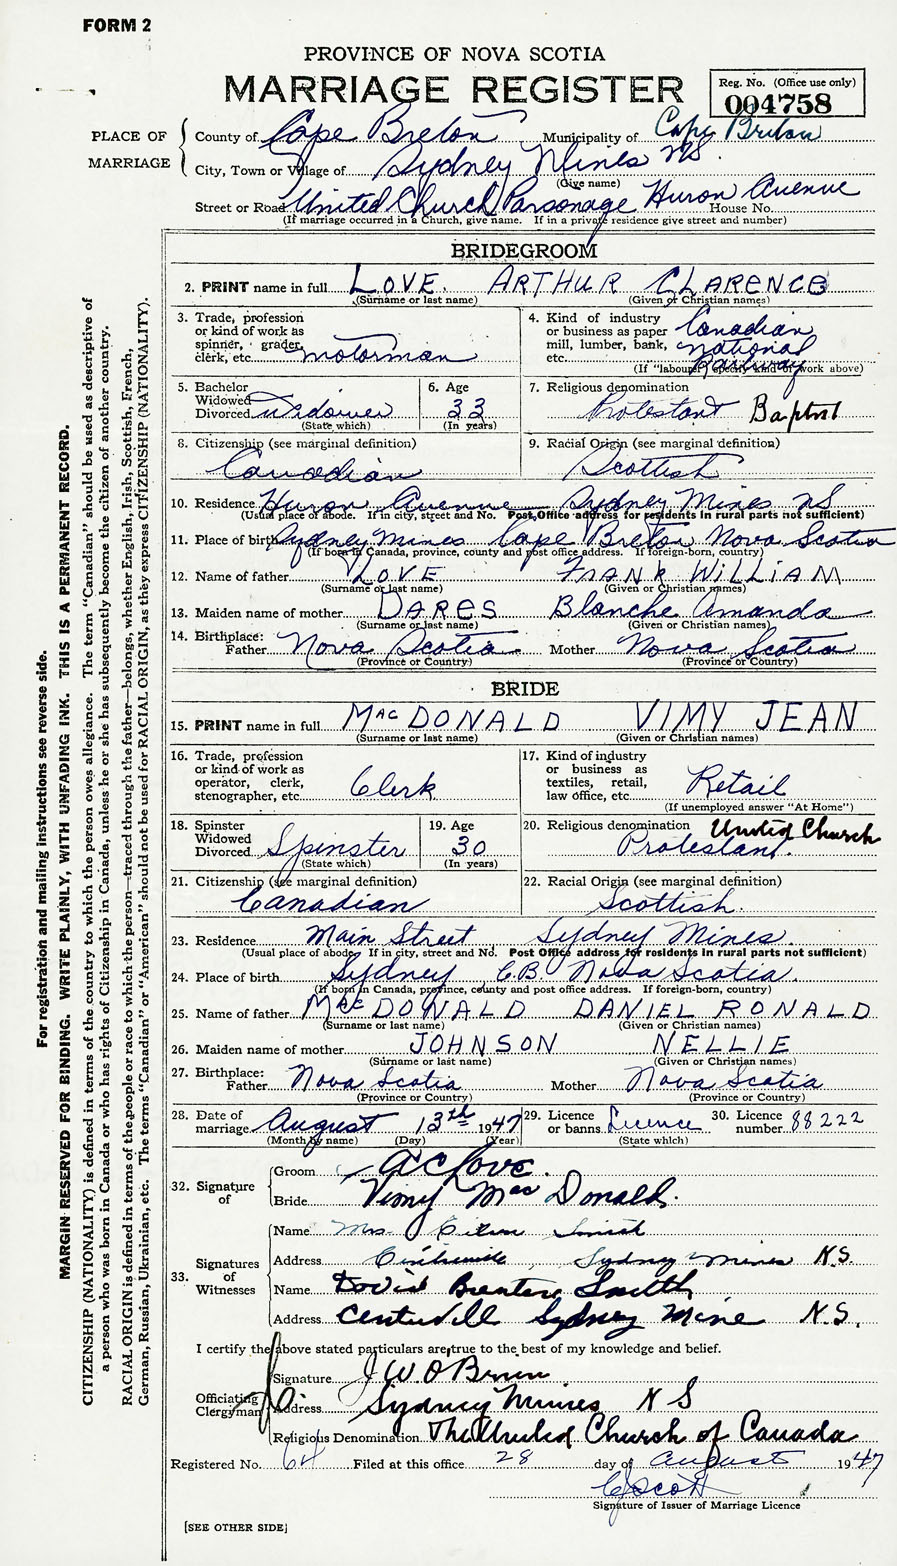 FORM 2
PROVINCE OF NOVA SCOTIA
MARRIAGE REGISTER
Reg. No. (Office use only)
004758
PLACE OF MARRIAGE
County of Cape Breton Municipality of Cape Breton
City, Town or Village of Sydney Mines NS.
(Give name)
Street or Road United Church Parsonage Huron Avenue House No.
(If marriage occurred in a Church, give name. If in a private residence give street and number)
BRIDEGROOM
2. PRINT name in full LOVE. ARTHUR CLARENCE
(Surname or last name) (Given or Christian names)
3. Trade, profession or kind of work as spinner, grader, clerk, etc. motorman
4. Kind of industry or business as paper mill, lumber, bank, etc. Canadian National Railway
(If "labourer" specify kind of work above)
5. Bachelor Widowed Divorced Widower
(State which)
6. Age 33
(In years)
7. Religious denomination Protestant Baptist
8. Citizenship (see marginal definition) Canadian
9. Racial Origin (see marginal definition) Scottish
10. Residence Huron Avenue Sydney Mines NS
(Usual place of abode. If in city, street and No. Post Office address for residents in rural parts not sufficient)
11. Place of birth Sydney Mines Cape Breton Nova Scotia
(If born in Canada, province, county and post office address. If foreign-born, country)
12. Name of father LOVE FRANK WILLIAM
(Surname or last name) (Given or Christian names)
13. Maiden name of mother DARES Blanche Amanda
(Surname or last name) (Given or Christian names)
14. Birthplace: Father Nova Scotia Mother Nova Scotia
(Province or Country) (Province or Country)
BRIDE
15. PRINT name in full MacDONALD VIMY JEAN
(Surname or last name) (Given or Christian names)
16. Trade, profession or kind of work as operator, clerk, stenographer, etc. Clerk
17. Kind of industry or business as textiles, retail, law office, etc. Retail
(If unemployed answer "At Home")
18. Spinster Widowed Divorced Spinster
(State which)
19. Age 30
(In years)
20. Religious denomination United Church Protestant.
21. Citizenship (see marginal definition) Canadian
22. Racial Origin (see marginal definition) Scottish.
23. Residence Main Street Sydney Mines.
(Usual place of abode. If in city, street and No. Post Office address for residents in rural parts not sufficient)
24. Place of birth Sydney C.B. Nova Scotia.
(If born in Canada, province, county and post office address. If foreign-born, country)
25. Name of father MacDONALD DANIEL RONALD
(Surname or last name) (Given or Christian names)
26. Maiden name of mother JOHNSON NELLIE
(Surname or last name) (Given or Christian names)
27. Birthplace: Father Nova Scotia Mother Nova Scotia
(Province or Country) (Province or Country)
28. Date of marriage August 13th 1947
(Month by name) (Day) (Year)
29. Licence or banns Licence
(State which)
30. Licence number 88222
32. Signature of
Groom A C Love.
Bride Vimy MacDonald.
33. Signatures of Witnesses
Name Mrs. Smith
Address Sydney Mines N.S.
Name David Smith
Address Centervill Sydney Mine N.S.
I certify the above stated particulars are true to the best of my knowledge and belief.
Officiating Clergyman
Signature J W O Brien
Address Sydney Mines N S
Religious Denomination The United Church of Canada
Registered No. 64 Filed at this office 28 day of August 1947
C Scott
Signature of Issuer of Marriage Licence
[SEE OTHER SIDE]
For registration and mailing instructions see reverse side.
MARGIN RESERVED FOR BINDING. WRITE PLAINLY, WITH UNFADING INK. THIS IS A PERMANENT RECORD.
CITIZENSHIP (NATIONALITY) is defined in terms of the country to which the person owes allegiance. The term "Canadian" should be used as descriptive of
a person who was born in Canada or who has rights of Citizenship in Canada, unless he or she has subsequently become the citizen of another country.
RACIAL ORIGIN is defined in terms of the people or race to which the person—traced through the father—belongs, whether English, Irish, Scottish, French,
German, Russian, Ukrainian, etc. The terms "Canadian" or "American" should not be used for RACIAL ORIGIN, as they express CITIZENSHIP (NATIONALITY).